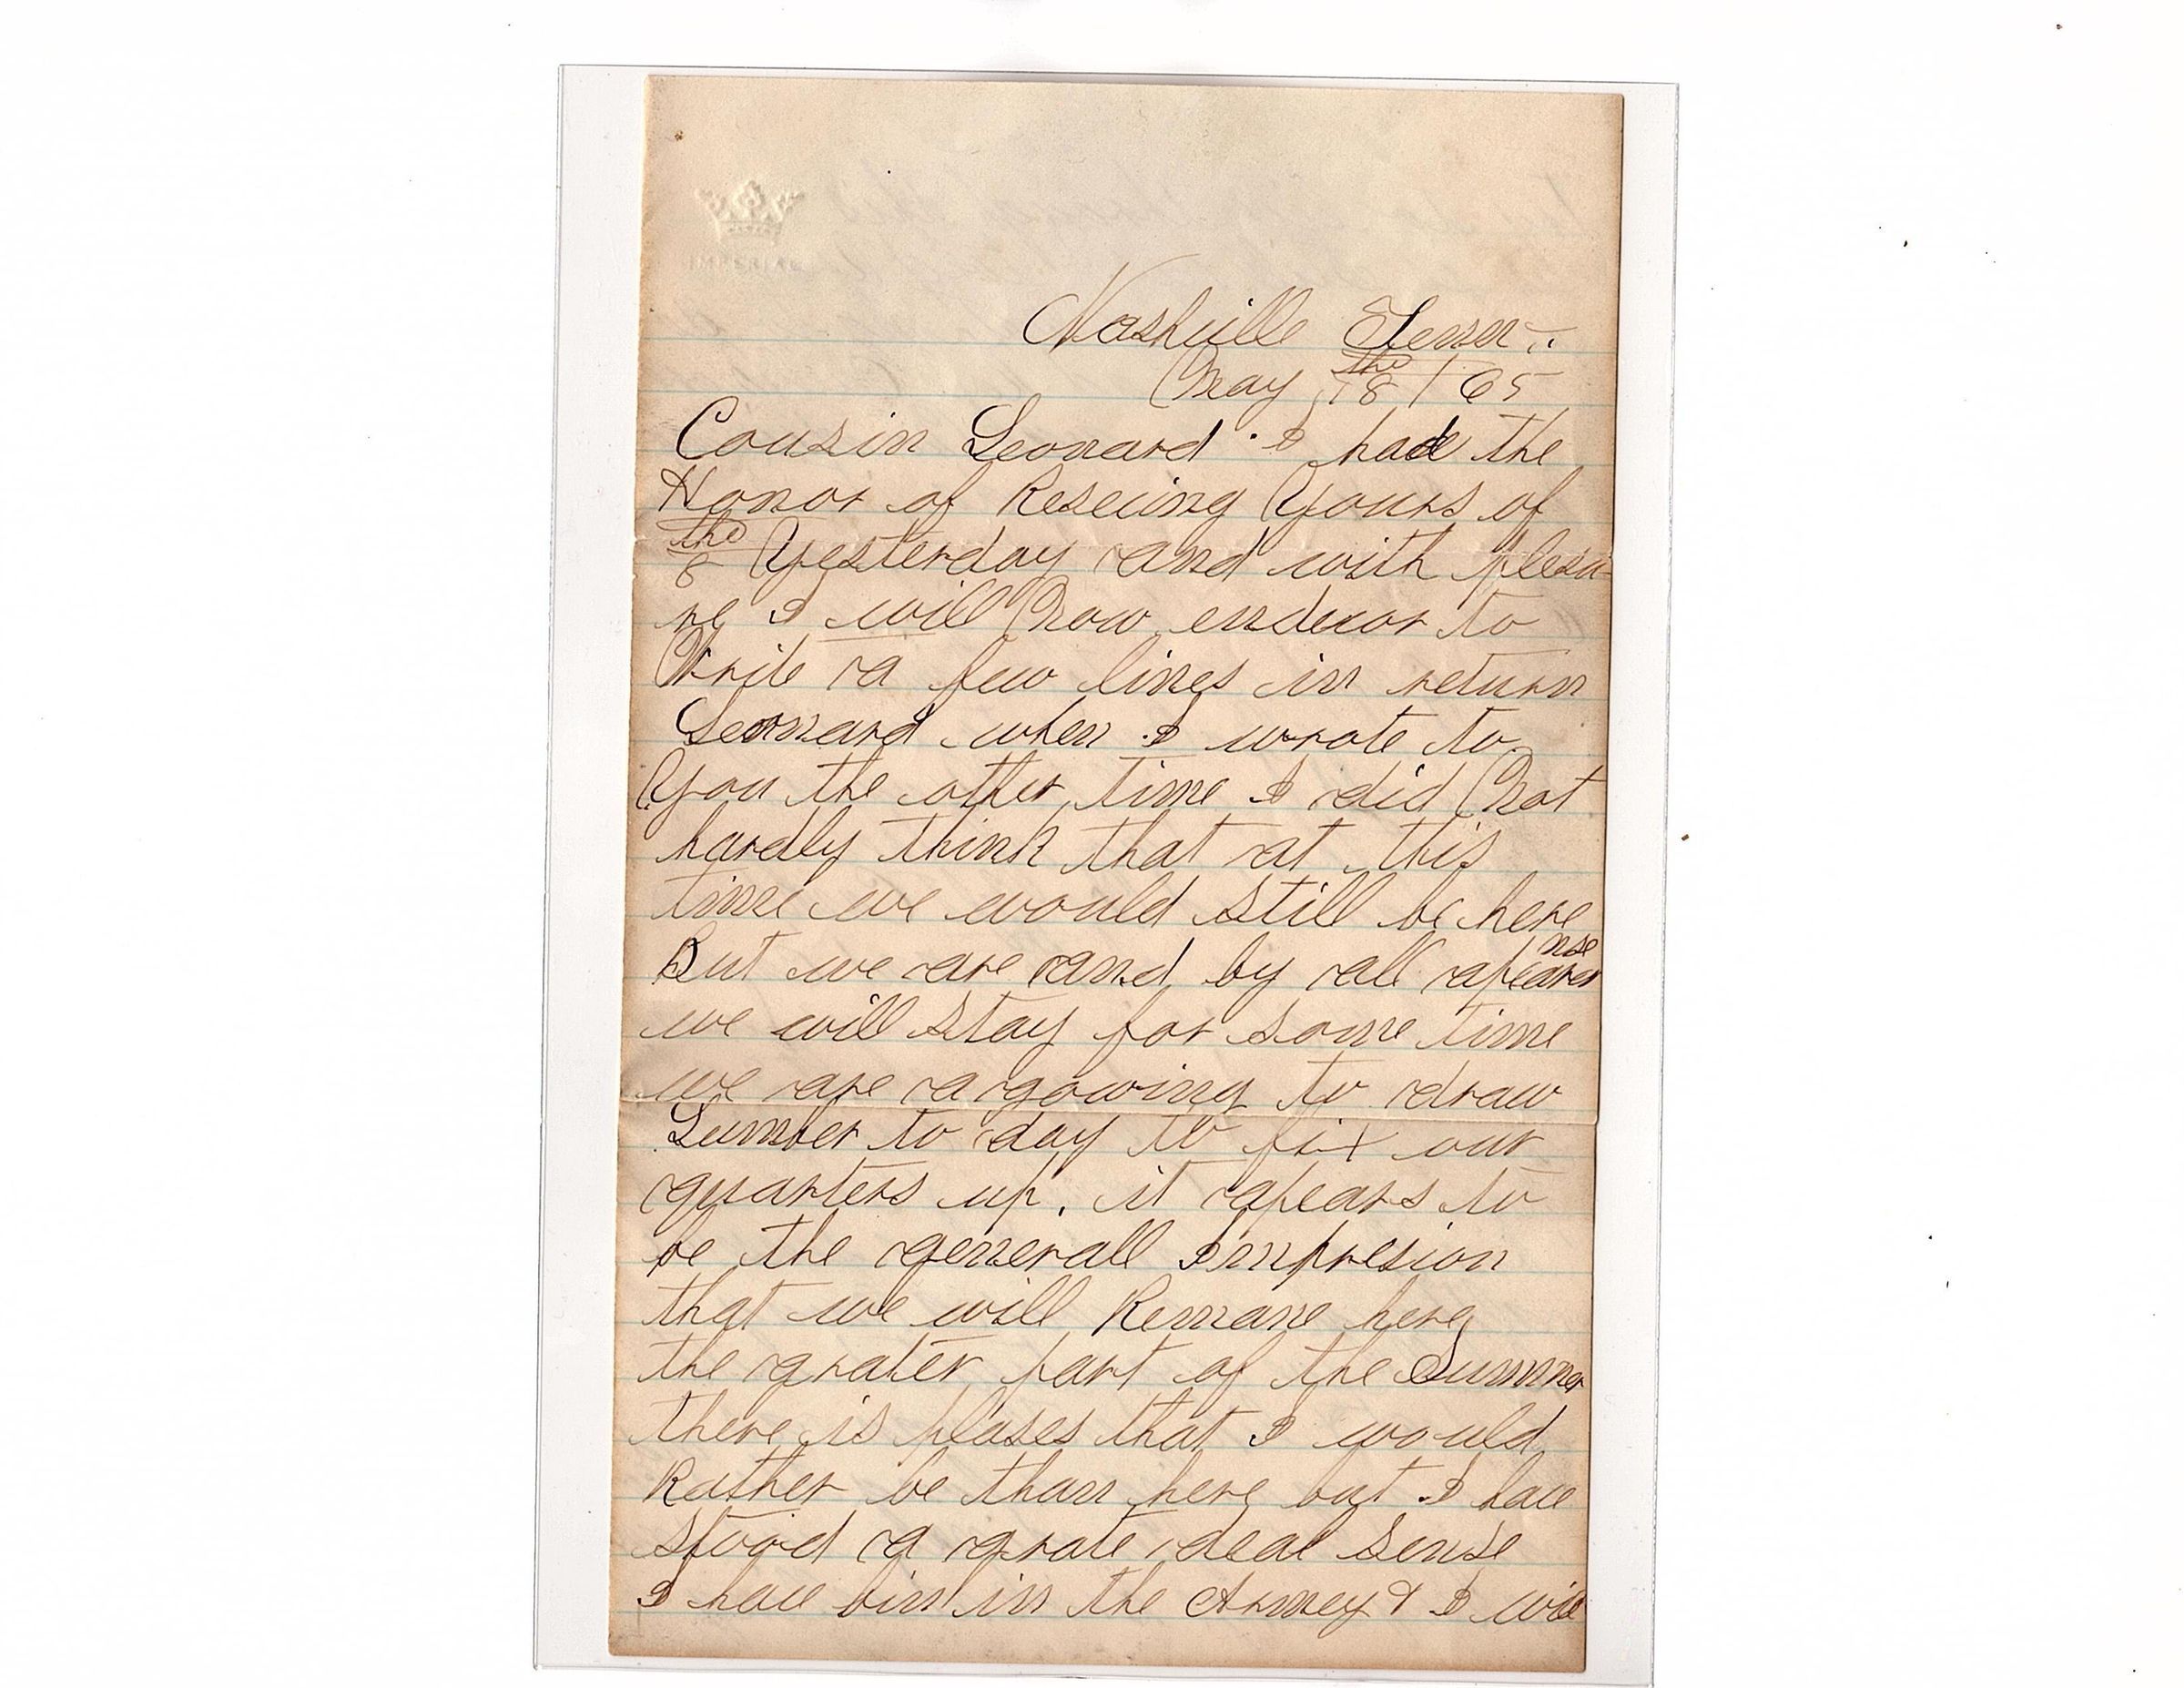 IMPERIAL
Nashville Tenn..
May 18the / 65
Cousin Leonard . I had the
Honor of Reseiing Yours of
8the Yesterday and with plesu-
re I will Now endevor to
Write a few lines in return
Leonard when I wrote to
You the other time I did Not
hardly think that at this
time we would still be here
But we are and by all apearanse
we will stay for some time
we are a gowing to draw
Lumber to day to fix our
quarters up. it apears to
be the generall Impresion
that we will Remane here
the grater part of the Summer
there is plases that I would
Rather be than here but I have
stood a grate deal sense
I have bin in the Armey & I will